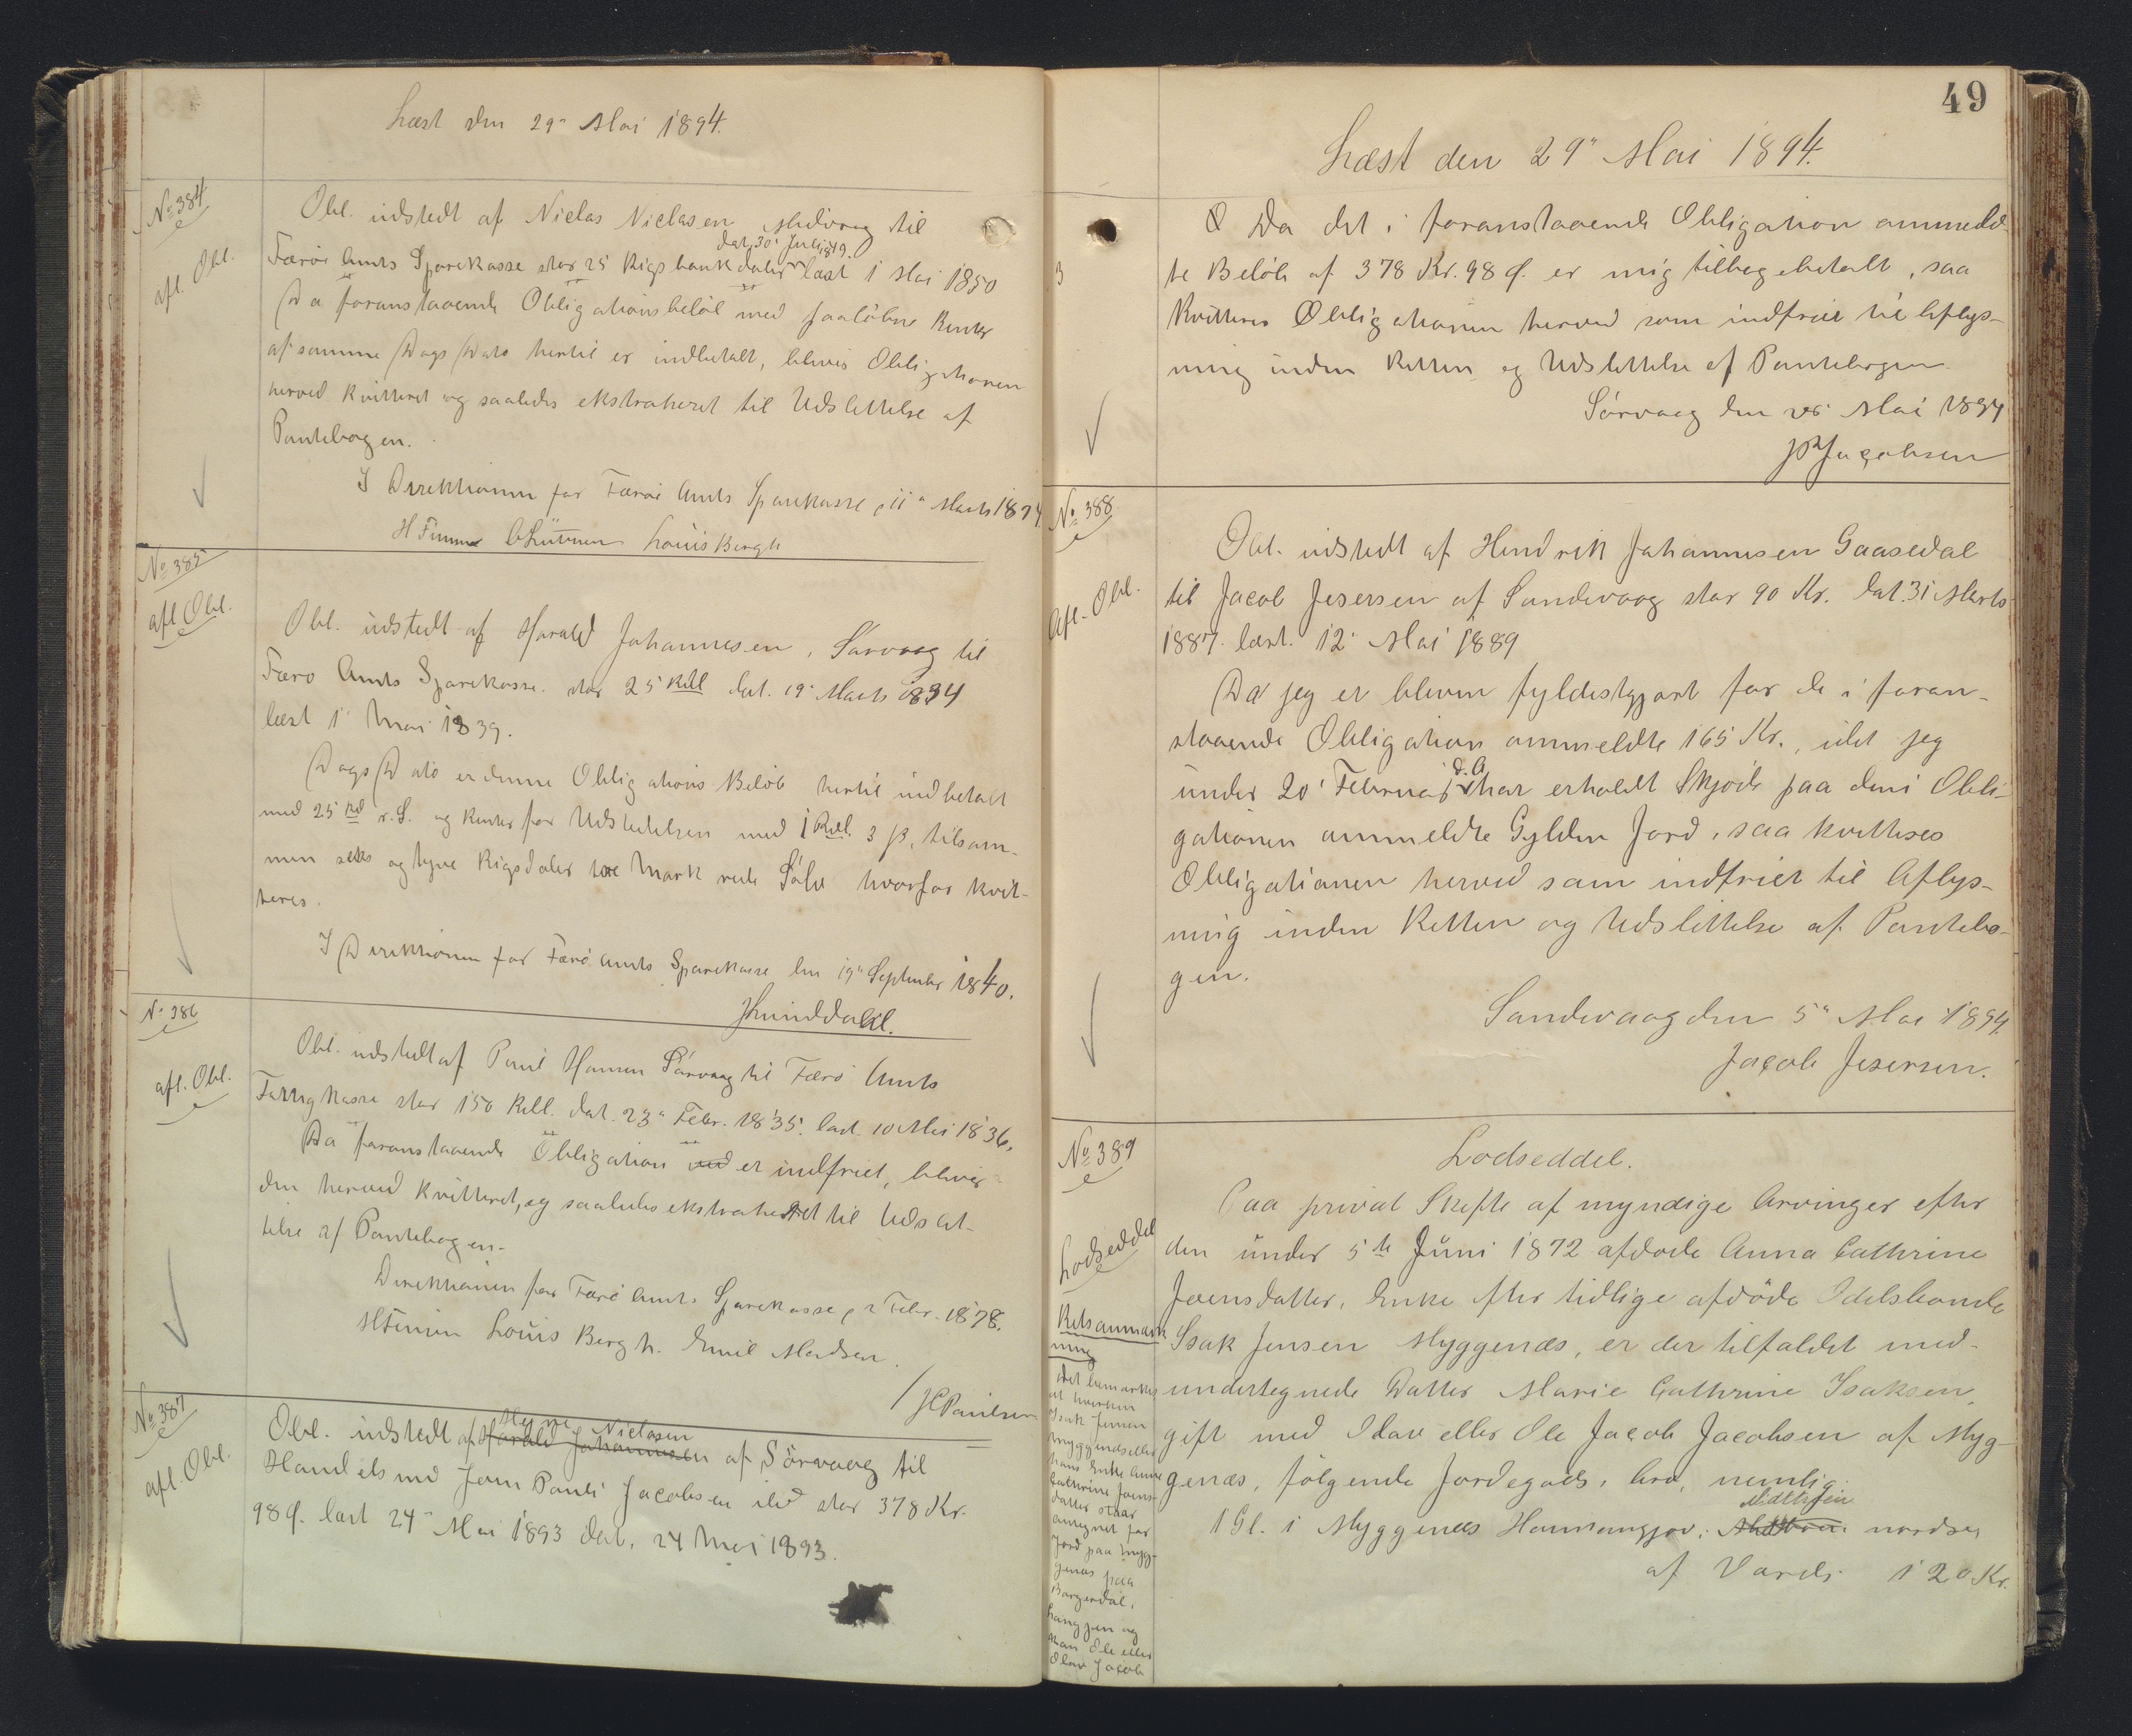 Læst den 29' Mai 1894.
No 384
afl. Obl.
Obl. udstedt af Niclas Niclasen Midvaag til
dat. 30' Juli 1849.
Færöe Amts Sparekasse stor 25 Rigsbankdaler læst 1 Mai 1850
Da foranstaaende Obligationsbelöb med paalöbne Renter
af samme Dags Dato hertil er indbetalt, bliver Obligationen
herved kvitteret og saaledes ekstraheret til Udslettelse af
Pantebogen.
I Direktionen for Færöe Amts Sparekasse, 11' Marts 1874.
H Finsen Louis Bergh
No 385
afl Obl.
Obl. udstedt af Harald Johannesen, Sörvaag til
Færö Amts Sparekasse. stor 25 Rdl dat. 19' Marts 1834
læst 1' Mai 1839.
Dags Dato er denne Obligations Belöb hertil indbetalt
med 25 Rd r.S. og Renter for Udstedelsen med 1 Rdl. 3 ß, tilsam-
men seks og tyve Rigsdaler tre Mark rede Sölv hvorfor kvit-
teres.
I Direktionen for Færö Amts Sparekasse den 19' September 1840.
No 386
afl. Obl.
Obl. udstedt af Poul Hansen Sörvaag til Færö Amts
Fattigkasse stor 150 Rdl. dat. 23' Febr. 1835. læst 10 Mai 1836.
Da foranstaaende Obligation er indfriet, bliver
den herved kvitteret, og saaledes ekstraheret til Udslet-
telse af Pantebogen.
Direktionen for Færö Amts Sparekasse, 2 Febr. 1878.
HFinsen Louis Bergh. Emil Madsen.
/ HCPaulsen
No 387
afl. Obl.
Niclasen
Obl. udstedt af Harald Johannesen af Sörvaag til
Handelsmd Joen Pauli Jacobsen ibd stor 378 Kr.
98 Ø. læst 24' Mai 1893 dat. 24 Mai 1893.
49
Læst den 29' Mai 1894.
Da det i foranstaaende Obligation ommeld-
te Belöb af 378 Kr. 98 Ø. er mig tilbagebetalt, saa
kvitteres Obligationen herved som indfriet til Aflys-
ning inden Retten og Udslettelse af Pantebogen.
Sörvaag den 28' Mai 1894
JPJacobsen
No 388
Afl. Obl.
Obl. udstedt af Hendrik Johannesen Gaasedal
til Jacob Jesersen af Sandevaag stor 90 Kr. dat. 31 Marts
1887. læst. 12' Mai 1889
Da jeg er bleven fyldestgjort for de i foran-
staaende Obligation ommeldte 165 Kr., idet jeg
d. A.
under 20' Februar har erholdt Skjöde paa den i Obli-
gationen ommeldte Gylden Jord, saa kvitteres
Obligationen herved som indfriet til Aflys-
ning inden Retten og Udslettelse af Pantebo-
gen.
Sandevaag den 5' Mai 1894
Jacob Jesersen.
No 389
Lodseddel
Lodseddel.
Paa privat Skifte af myndige Arvinger efter
den under 5te Juni 1872 afdöde Anna Cathrine
Joensdatter, Enke efter tidlige afdöde Odelsbonde
Isak Jensen Myggenæs, er der tilfaldet med-
undertegnede Datter Marie Cathrine Isaksen,
gift med Olav eller Ole Jacob Jacobsen af Myg-
genæs, fölgende Jordegods, Arv, nemlig:
1 Gl. i Myggenæs nordre
af Værdi 120 Kr.
Retsanmærk
ning
Det bemærkes
at hverken
Isak Jensen
Myggenæs eller
hans Enke Anna
Cathrine Joens-
datter staar
antegnet for
Jord paa Myg-
genæs paa
Borgerdal,
og
kan Ole eller
Olav Jacob